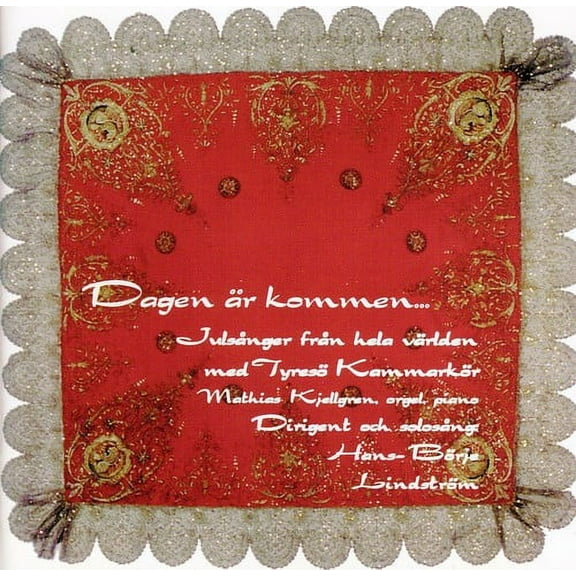 Dagen är kommen...
Julsånger från hela världen
med Tyresö Kammarkör
Mathias Kjellgren, orgel, piano
Dirigent och solosång:
Hans-Börje
Lindström